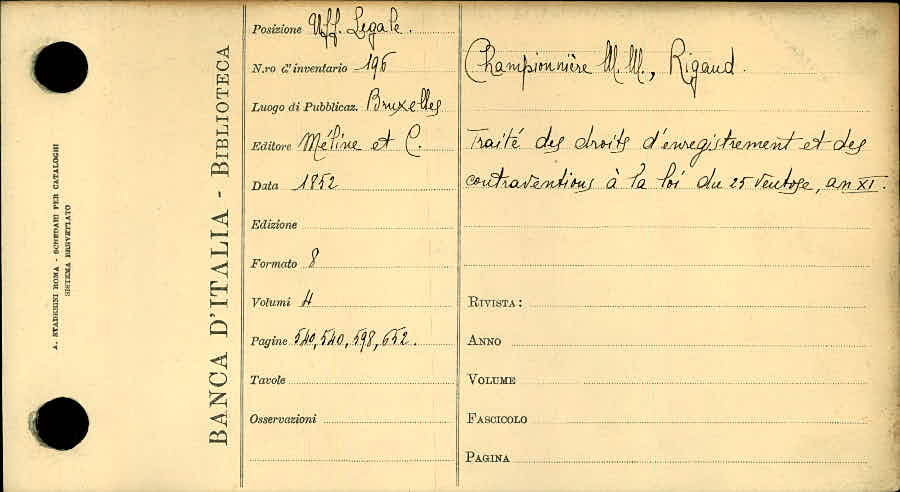 A. STADERINI ROMA - SCHEDARI PER CATALOGHI
SISTEMA BREVETTATO
BANCA D'ITALIA - BIBLIOTECA
Posizione Uff. Legale.
N.ro d'inventario 196
Luogo di Pubblicaz. Bruxelles
Editore Méline et C.
Data 1852
Edizione
Formato 8
Volumi 4
Pagine 540, 540, 598, 652.
Tavole
Osservazioni
Championnière M.M., Rigaud.
Traité des droits d'enregistrement et des
contraventions à la loi du 25 ventose, an XI.
RIVISTA:
ANNO
VOLUME
FASCICOLO
PAGINA